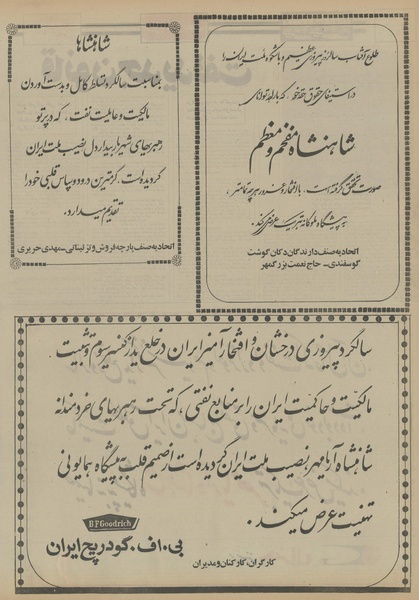 طلوع آفتاب سالروز پیروزی عظیم و باشکوه ملت ایران را
در استیفای حقوق حقه خود، که با رهبریهای
شاهنشاه مفخم و معظم
صورت تحقق گرفته است. با افتخار و غرور هرچه تمامتر،
به پیشگاه ملوکانه تبریک عرض می کند.
اتحادیه صنف دارندگان دکان گوشت
گوسفندی - حاج نعمت بزرگمهر
شاهنشاها
بمناسبت سالگرد تسلط کامل و بدست آوردن
مالکیت و حاکمیت نفت، که در پرتو
رهبریهای شهریار بیداردل نصیب ملت ایران
گردیده است، گرمترین درود و سپاس قلبی خود را
تقدیم میدارد.
اتحادیه صنف پارچه فروش و تزئیناتی - مهدی حریری
سالگرد پیروزی درخشان و افتخارآمیز ایران در خلع ید از کنسرسیوم و تثبیت
مالکیت و حاکمیت ایران را بر منابع نفتی، که تحت رهبریهای خردمندانه
شاهنشاه آریامهر نصیب ملت ایران گردیده است از صمیم قلب به پیشگاه همایونی
تهنیت عرض میکند.
BFGoodrich
بی.اف.گودریچ ایران
کارگران، کارکنان و مدیران